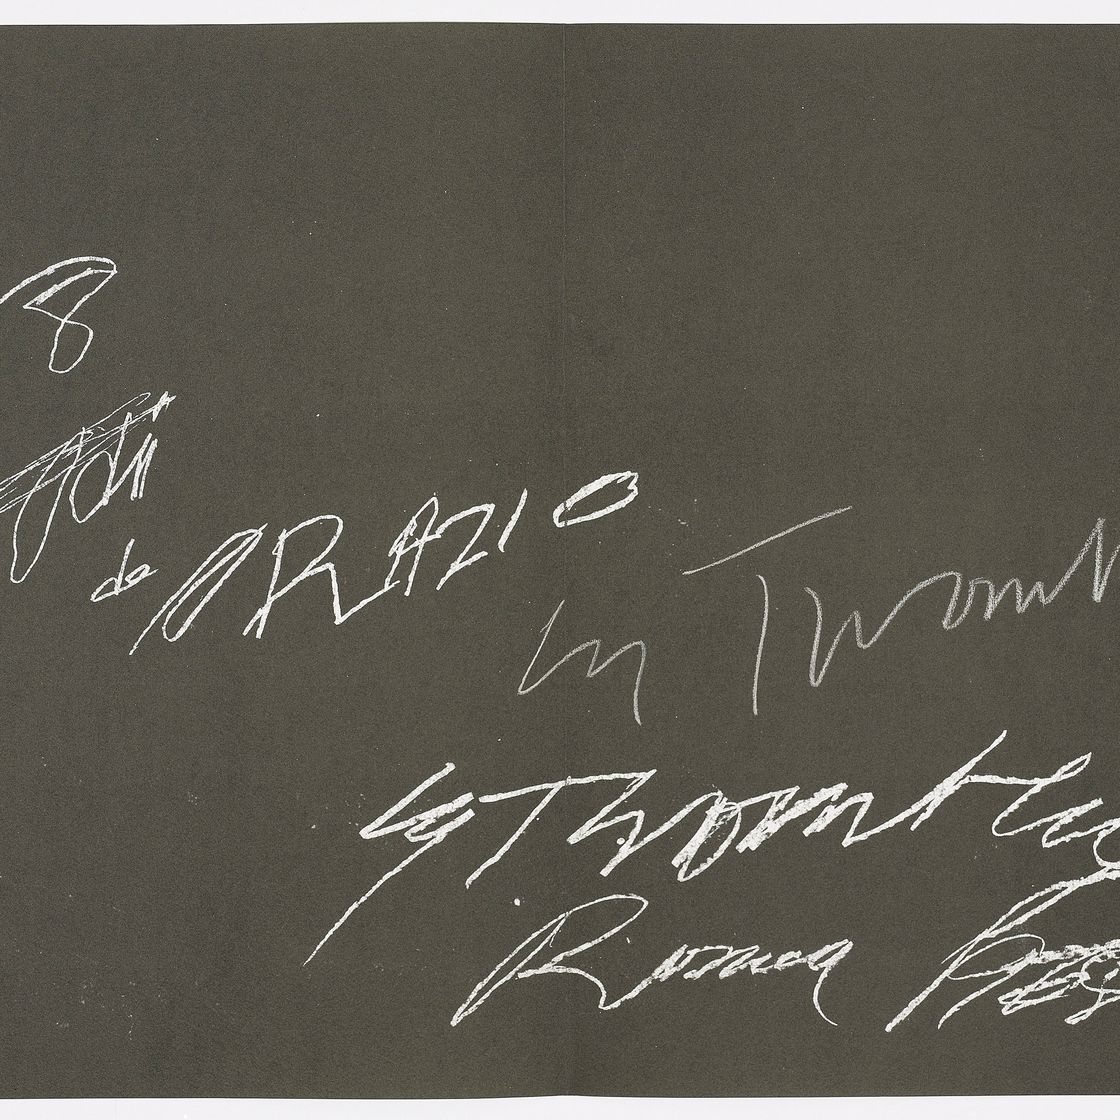 8
Odi
de ORAZIO
Cy Twombly
Cy Twombly
Roma